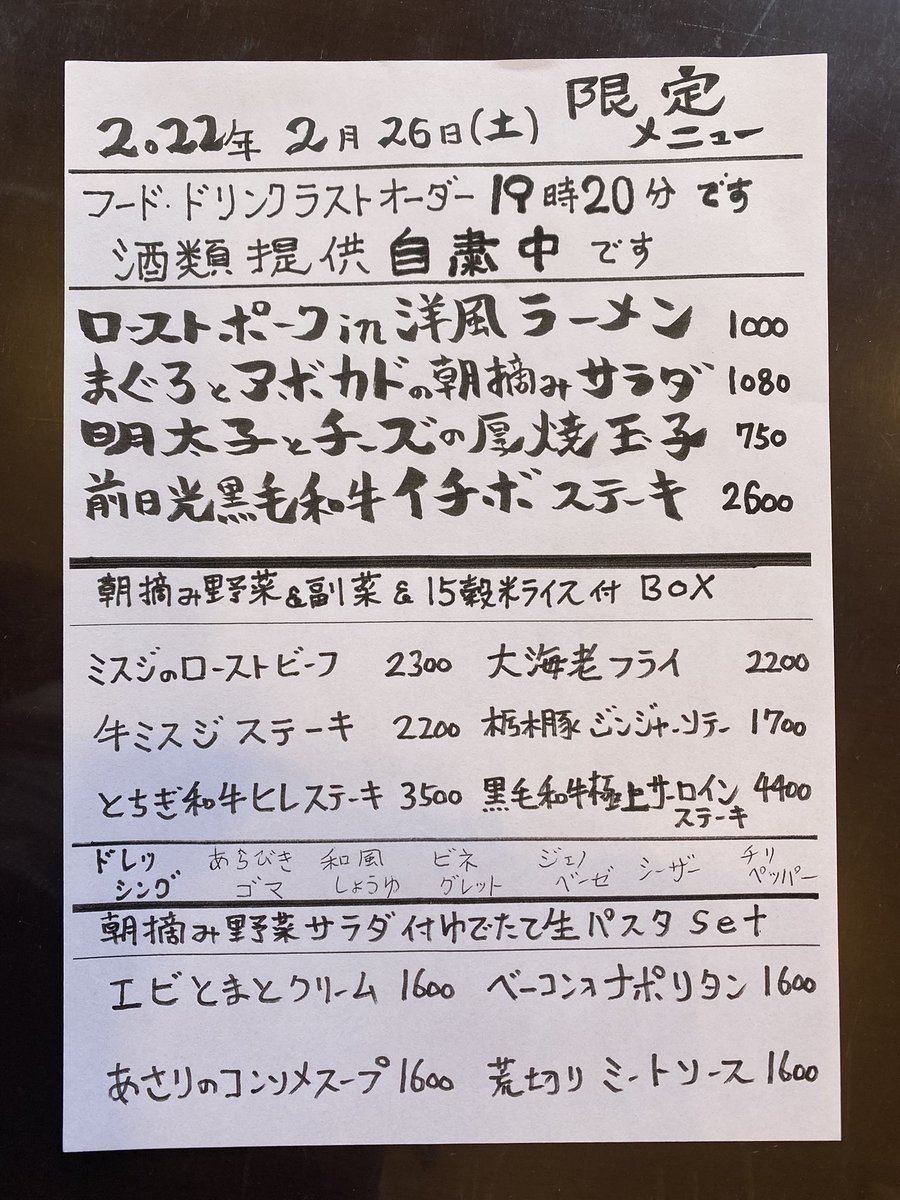 2022年 2月 26日(土) 限定メニュー
フード・ドリンクラストオーダー 19時20分 です
酒類提供 自粛中 です
ローストポークin洋風ラーメン 1000
まぐろとアボカドの朝摘みサラダ 1080
明太子とチーズの厚焼玉子 750
前日光黒毛和牛イチボステーキ 2600
朝摘み野菜&副菜&15穀米ライス付 BOX
ミスジのローストビーフ 2300 大海老フライ 2200
牛ミスジステーキ 2200 栃木豚ジンジャーソテー 1700
とちぎ和牛ヒレステーキ 3500 黒毛和牛極上サーロインステーキ 4400
ドレッシング あらびきゴマ 和風しょうゆ ビネグレット ジェノベーゼ シーザー チリペッパー
朝摘み野菜サラダ付ゆでたて生パスタ Set
エビとまとクリーム 1600 ベーコンonナポリタン 1600
あさりのコンソメスープ 1600 荒切りミートソース 1600